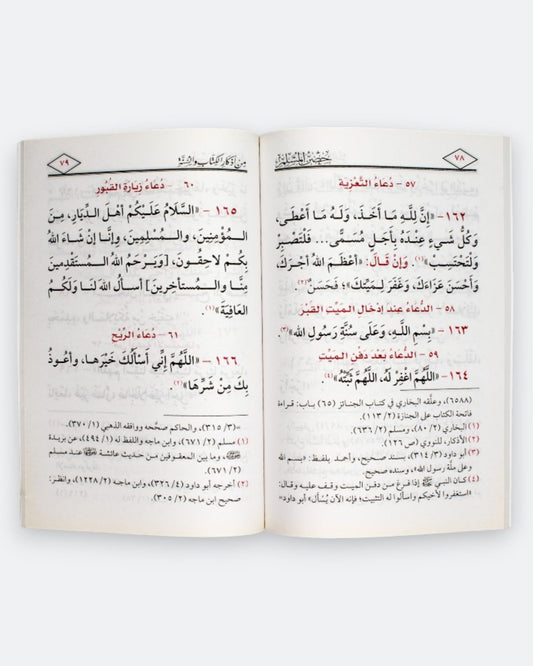 ٧٨
حصن المسلم
٥٧ - دُعَاءُ التَّعْزِيَةِ
١٦٢ - «إِنَّ لِلَّهِ مَا أَخَذَ، وَلَهُ مَا أَعْطَى،
وَكُلُّ شَيْءٍ عِنْدَهُ بِأَجَلٍ مُسَمًّى... فَلْتَصْبِرْ
وَلْتَحْتَسِبْ»(١). وَإِنْ قَالَ: «أَعْظَمَ اللهُ أَجْرَكَ،
وَأَحْسَنَ عَزَاءَكَ، وَغَفَرَ لِمَيِّتِكَ»؛ فَحَسَنٌ(٢).
٥٨ - الدُّعَاءُ عِنْدَ إِدْخَالِ المَيِّتِ القَبْرَ
١٦٣ - «بِسْمِ اللَّهِ، وَعَلَى سُنَّةِ رَسُولِ اللهِ»(٣).
٥٩ - الدُّعَاءُ بَعْدَ دَفْنِ المَيِّتِ
١٦٤ - «اللَّهُمَّ اغْفِرْ لَهُ، اللَّهُمَّ ثَبِّتْهُ»(٤).
(٦٥٨٨)، وعلَّقه البخاري في كتاب الجنائز (٦٥) باب: قراءة
فاتحة الكتاب على الجنازة (٢/ ١١٣).
(١) البخاري (٢/ ٨٠)، ومسلم (٢/ ٦٣٦).
(٢) الأذكار، للنووي (ص ١٢٦).
(٣) أبو داود (٣/ ٣١٤)، بسند صحيح، وأحمد بلفظ: «بسم الله
وعلى ملَّة رسول الله»، وسنده صحيح.
(٤) كان النبي ﷺ إذا فرغ من دفن الميت وقف عليه وقال:
«استغفروا لأخيكم واسألوا له التثبيت؛ فإنه الآن يُسأل» أبو داود=
من أذكار الكتاب والسنة
٧٩
٦٠ - دُعَاءُ زِيَارَةِ القُبُورِ
١٦٥ - «السَّلَامُ عَلَيْكُمْ أَهْلَ الدِّيَارِ، مِنَ
المُؤْمِنِينَ، وَالمُسْلِمِينَ، وَإِنَّا إِنْ شَاءَ اللهُ
بِكُمْ لَاحِقُونَ، [وَيَرْحَمُ اللهُ المُسْتَقْدِمِينَ
مِنَّا وَالمُسْتَأْخِرِينَ] أَسْأَلُ اللهَ لَنَا وَلَكُمُ
العَافِيَةَ»(١).
٦١ - دُعَاءُ الرِّيحِ
١٦٦ - «اللَّهُمَّ إِنِّي أَسْأَلُكَ خَيْرَهَا، وَأَعُوذُ
بِكَ مِنْ شَرِّهَا»(٢).
=(٣/ ٣١٥)، والحاكم صححه ووافقه الذهبي (١/ ٣٧٠).
(١) مسلم (٢/ ٦٧١)، وابن ماجه واللفظ له (١/ ٤٩٤)، عن بريدة
، وما بين المعقوفين من حديث عائشة عند مسلم
(٢/ ٦٧١).
(٢) أخرجه أبو داود (٤/ ٣٢٦)، وابن ماجه (٢/ ١٢٢٨)، وانظر:
صحيح ابن ماجه (٢/ ٣٠٥).